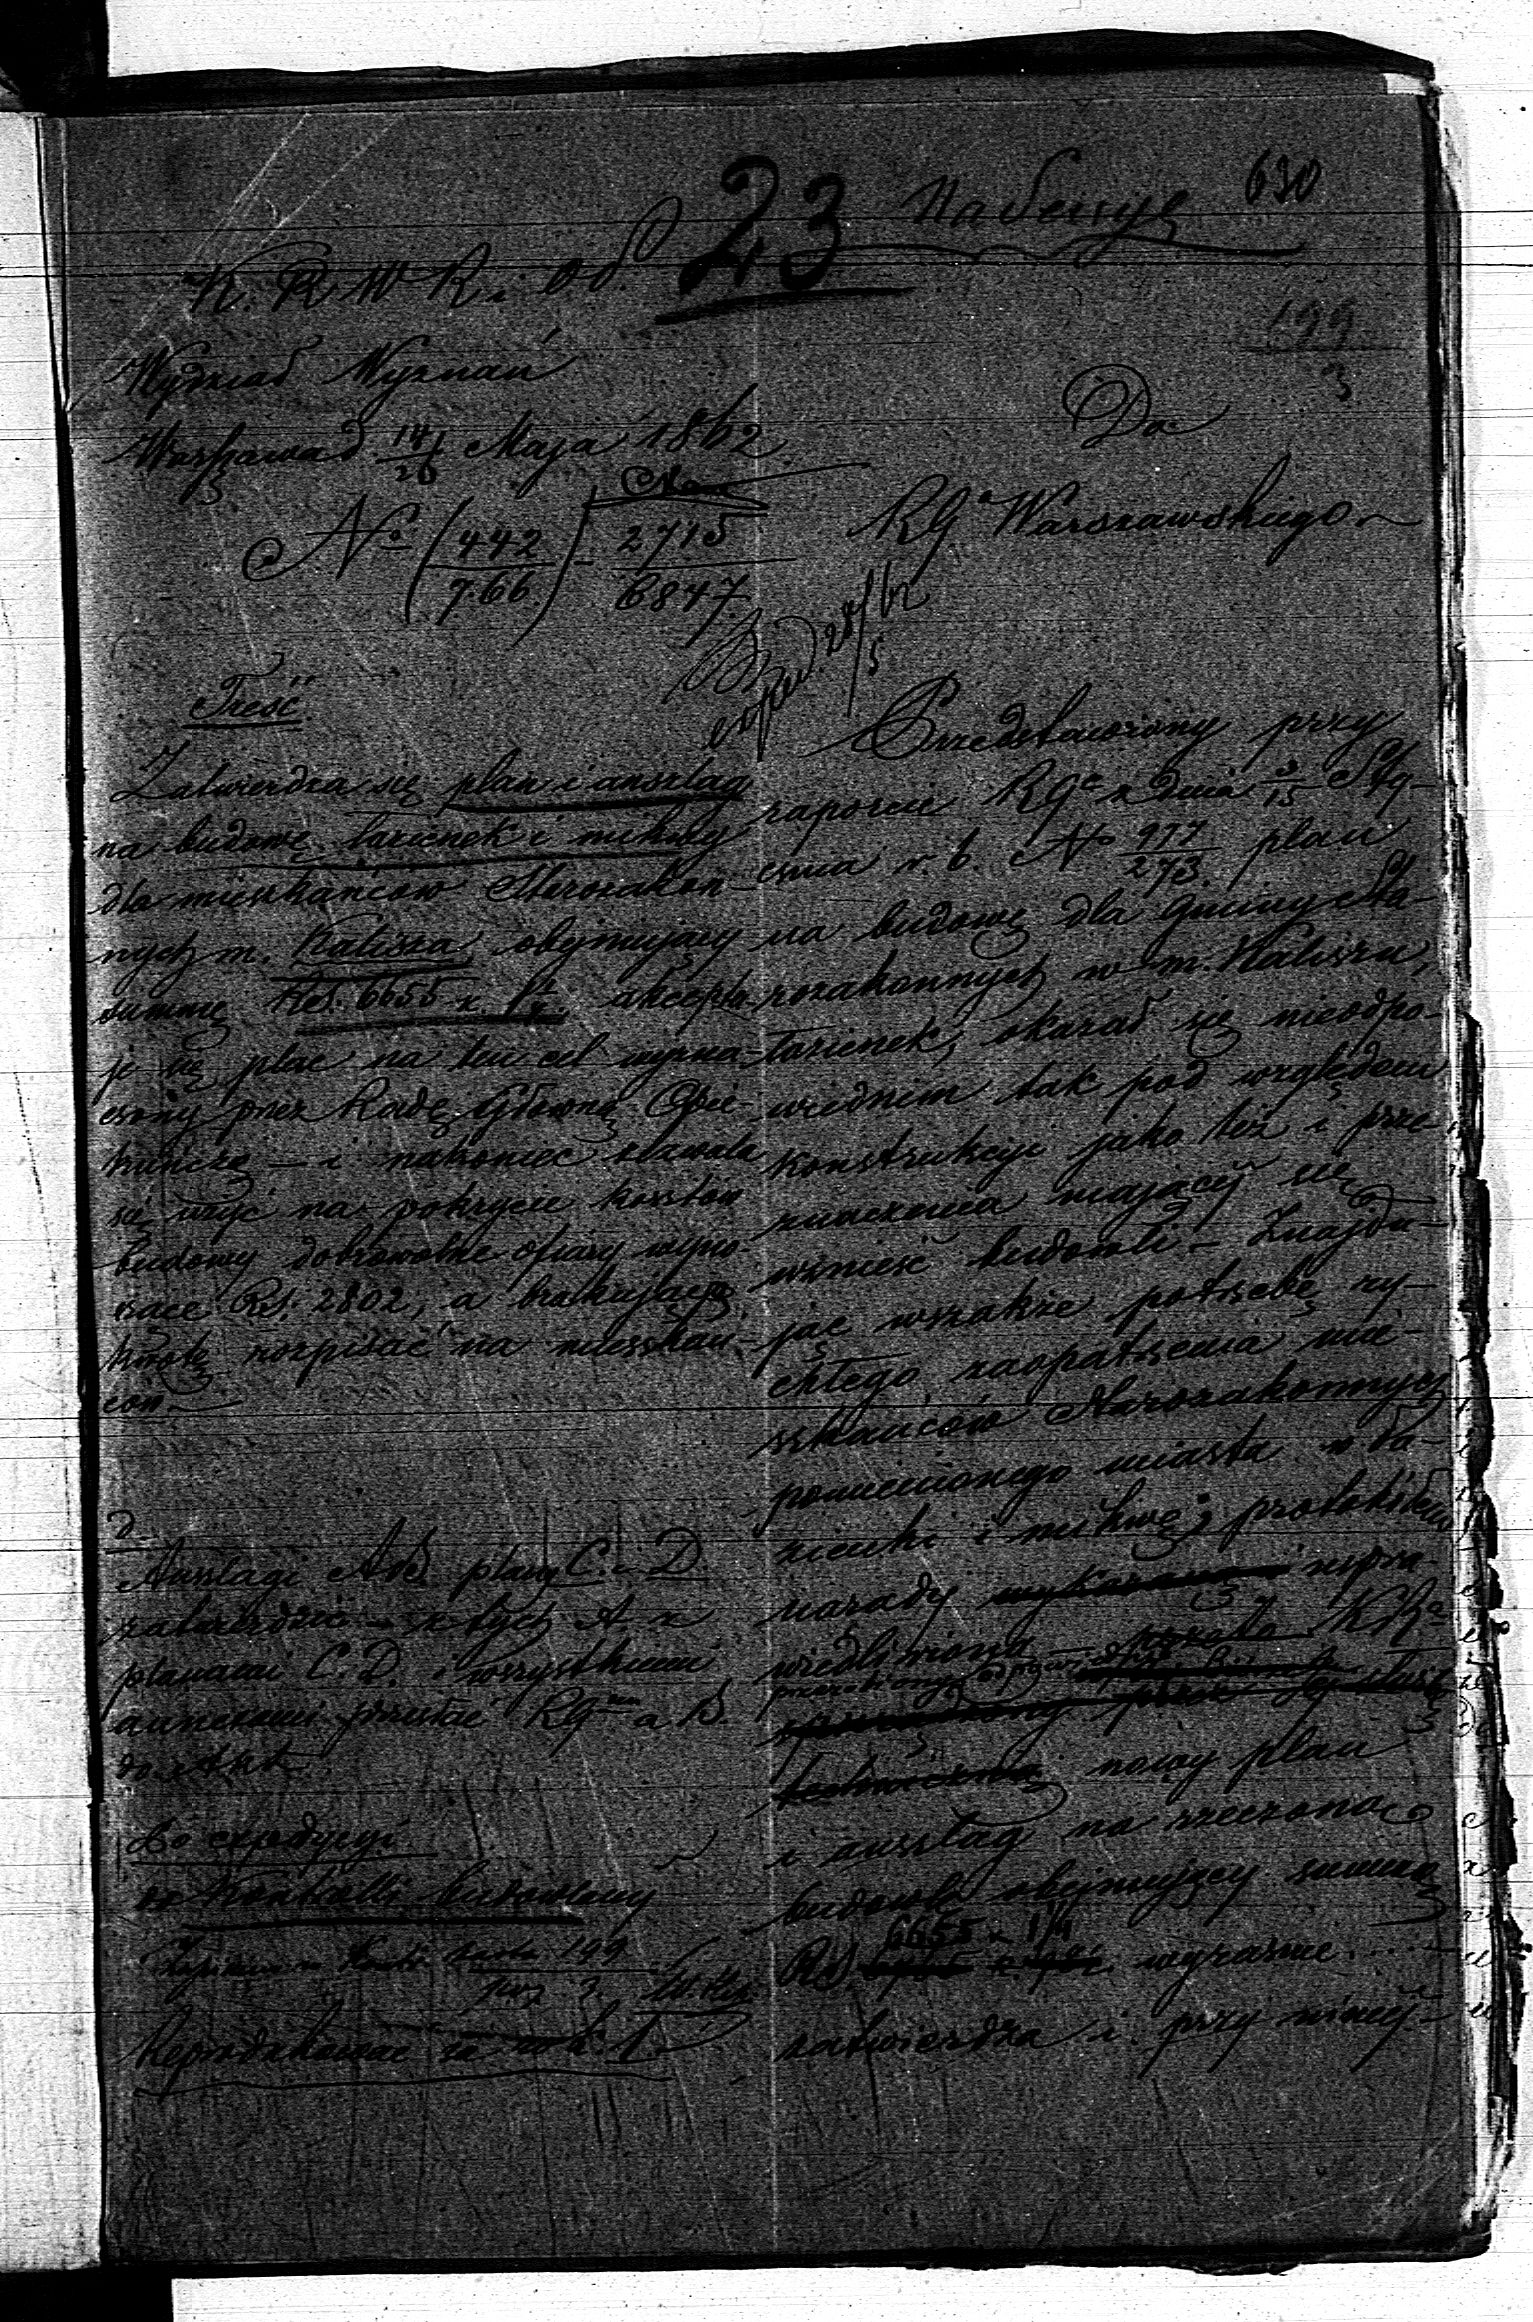 630
23
K. R. W. R. i O. P.
199
3
Wydział Wyznań
Warszawa d. 14/26 Maja 1862
Do
RGu Warszawskiego
No (442/766) 2715/6847
exped 28/5 62
Treść
Zatwierdza się plan i anszlag
na budowę łazienek i mikwy
dla mieszkańców Starozakon-
nych m. Kalisza obejmujący
summę Rs. 6655 k. 1/4, akceptu-
je się plac na ten cel wyzna-
czony przez Radę Główną Opie-
kuńczą — i nakoniec zezwala
się użyć na pokrycie kosztów
budowy dobrowolne ofiary wyno-
szące Rs. 2802, a brakującą
kwotę rozpisać na mieszkań-
ców.
Przedstawiony przy
raporcie RGo z dnia 3/15 Sty-
cznia r. b. No 977/273 plan
na budowę dla gminy Sta-
rozakonnych w m. Kaliszu,
łazienek, okazał się nieodpo-
wiednim tak pod względem
konstrukcyi jako też i prze-
znaczenia mającej się
wznieść budowli. — Znajdu-
jąc wszakże potrzebę ry-
chłego zaopatrzenia mie-
szkańców Starozakonnych
pomienionego miasta w ła-
zienki i mikwę, protokółem
narady wykazaną i uspra-
wiedliwioną — KR
nowy plan
i anszlag na rzeczoną
budowlę obejmujący summę
6655 k. 1/4
Rs. wyraźnie
zatwierdza i przy niniej-
D.
Anszlagi A i B. plany C. i D.
zatwierdzić — z tych A. z
planami C. D. i wszystkiemi
annexami przesłać RGmu a B.
do Akt.
Do expedycyi
do Kontrolli budowlanej
Zapisano w Kontr. karta 199
poz 3.
Reprodukować za rok 1.